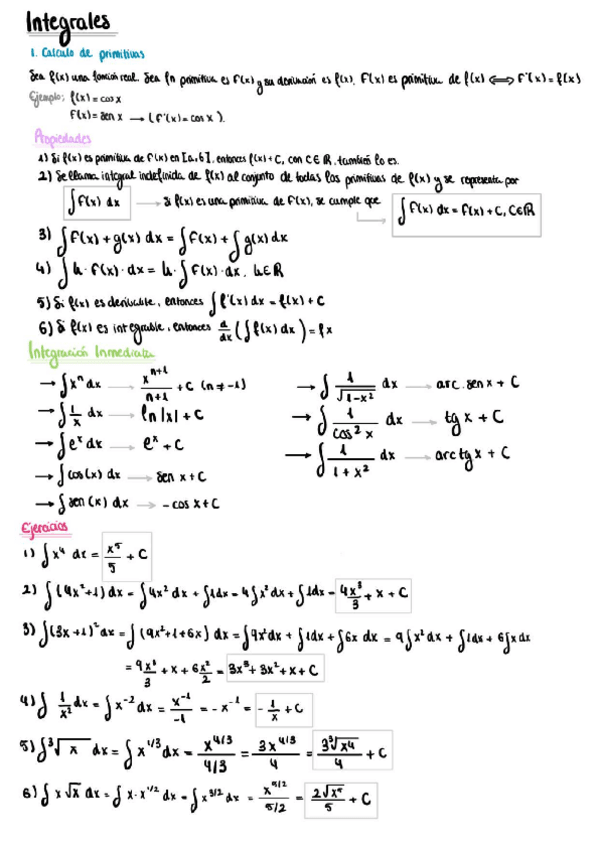 Integrales
1. Calculo de primitivas
Sea f(x) una funcion real. Sea fn primitiva es F(x) y su derivacion es f(x). F(x) es primitiva de f(x) ⟺ F'(x) = f(x)
Ejemplo: f(x) = cos x
F(x) = sen x → (F'(x) = cos x).
Propiedades
1) Si f(x) es primitiva de F(x) en [a,b], entonces f(x) + C, con C ∈ ℝ, también lo es.
2) Se llama integral indefinida de f(x) al conjunto de todas las primitivas de f(x) y se representa por
∫ f(x) dx → Si f(x) es una primitiva de F(x), se cumple que → ∫ f(x) dx = F(x) + C, C∈ℝ
3) ∫ f(x) + g(x) dx = ∫ f(x) + ∫ g(x) dx
4) ∫ k · f(x) · dx = k · ∫ f(x) · dx, k∈ℝ
5) Si f(x) es derivable, entonces ∫ f'(x) dx = f(x) + C
6) Si f(x) es integrable, entonces d/dx (∫ f(x) dx) = fx
Integración Inmediata
→ ∫ xⁿ dx → xⁿ⁺¹/n+1 + C (n ≠ -1)
→ ∫ 1/x dx → ln |x| + C
→ ∫ eˣ dx → eˣ + C
→ ∫ cos(x) dx → sen x + C
→ ∫ sen(x) dx → - cos x + C
→ ∫ 1/√(1-x²) dx → arc. sen x + C
→ ∫ 1/cos² x dx → tg x + C
→ ∫ 1/1+x² dx → arctg x + C
Ejercicios
1) ∫ x⁴ dx = x⁵/5 + C
2) ∫ (4x²+1) dx = ∫ 4x² dx + ∫ 1dx = 4 ∫ x² dx + ∫ 1dx = 4x³/3 + x + C
3) ∫ (3x+1)² dx = ∫ (9x²+1+6x) dx = ∫ 9x² dx + ∫ 1dx + ∫ 6x dx = 9 ∫ x² dx + ∫ 1dx + 6 ∫ x dx
= 9x³/3 + x + 6x²/2 = 3x³ + 3x² + x + C
4) ∫ 1/x² dx = ∫ x⁻² dx = x⁻¹/-1 = - x⁻¹ = - 1/x + C
5) ∫ ³√x dx = ∫ x^1/3 dx = x^4/3 / 4/3 = 3x^4/3 / 4 = 3 ³√x⁴ / 4 + C
6) ∫ x √x dx = ∫ x · x^1/2 dx = ∫ x^3/2 dx = x^5/2 / 5/2 = 2√x⁵ / 5 + C